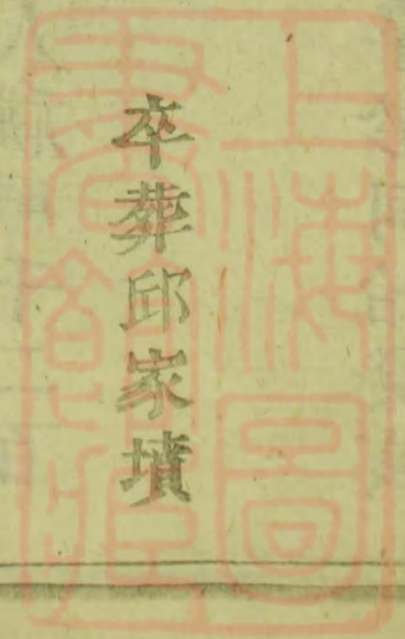 卒葬邱家墳
上海圖
書館藏